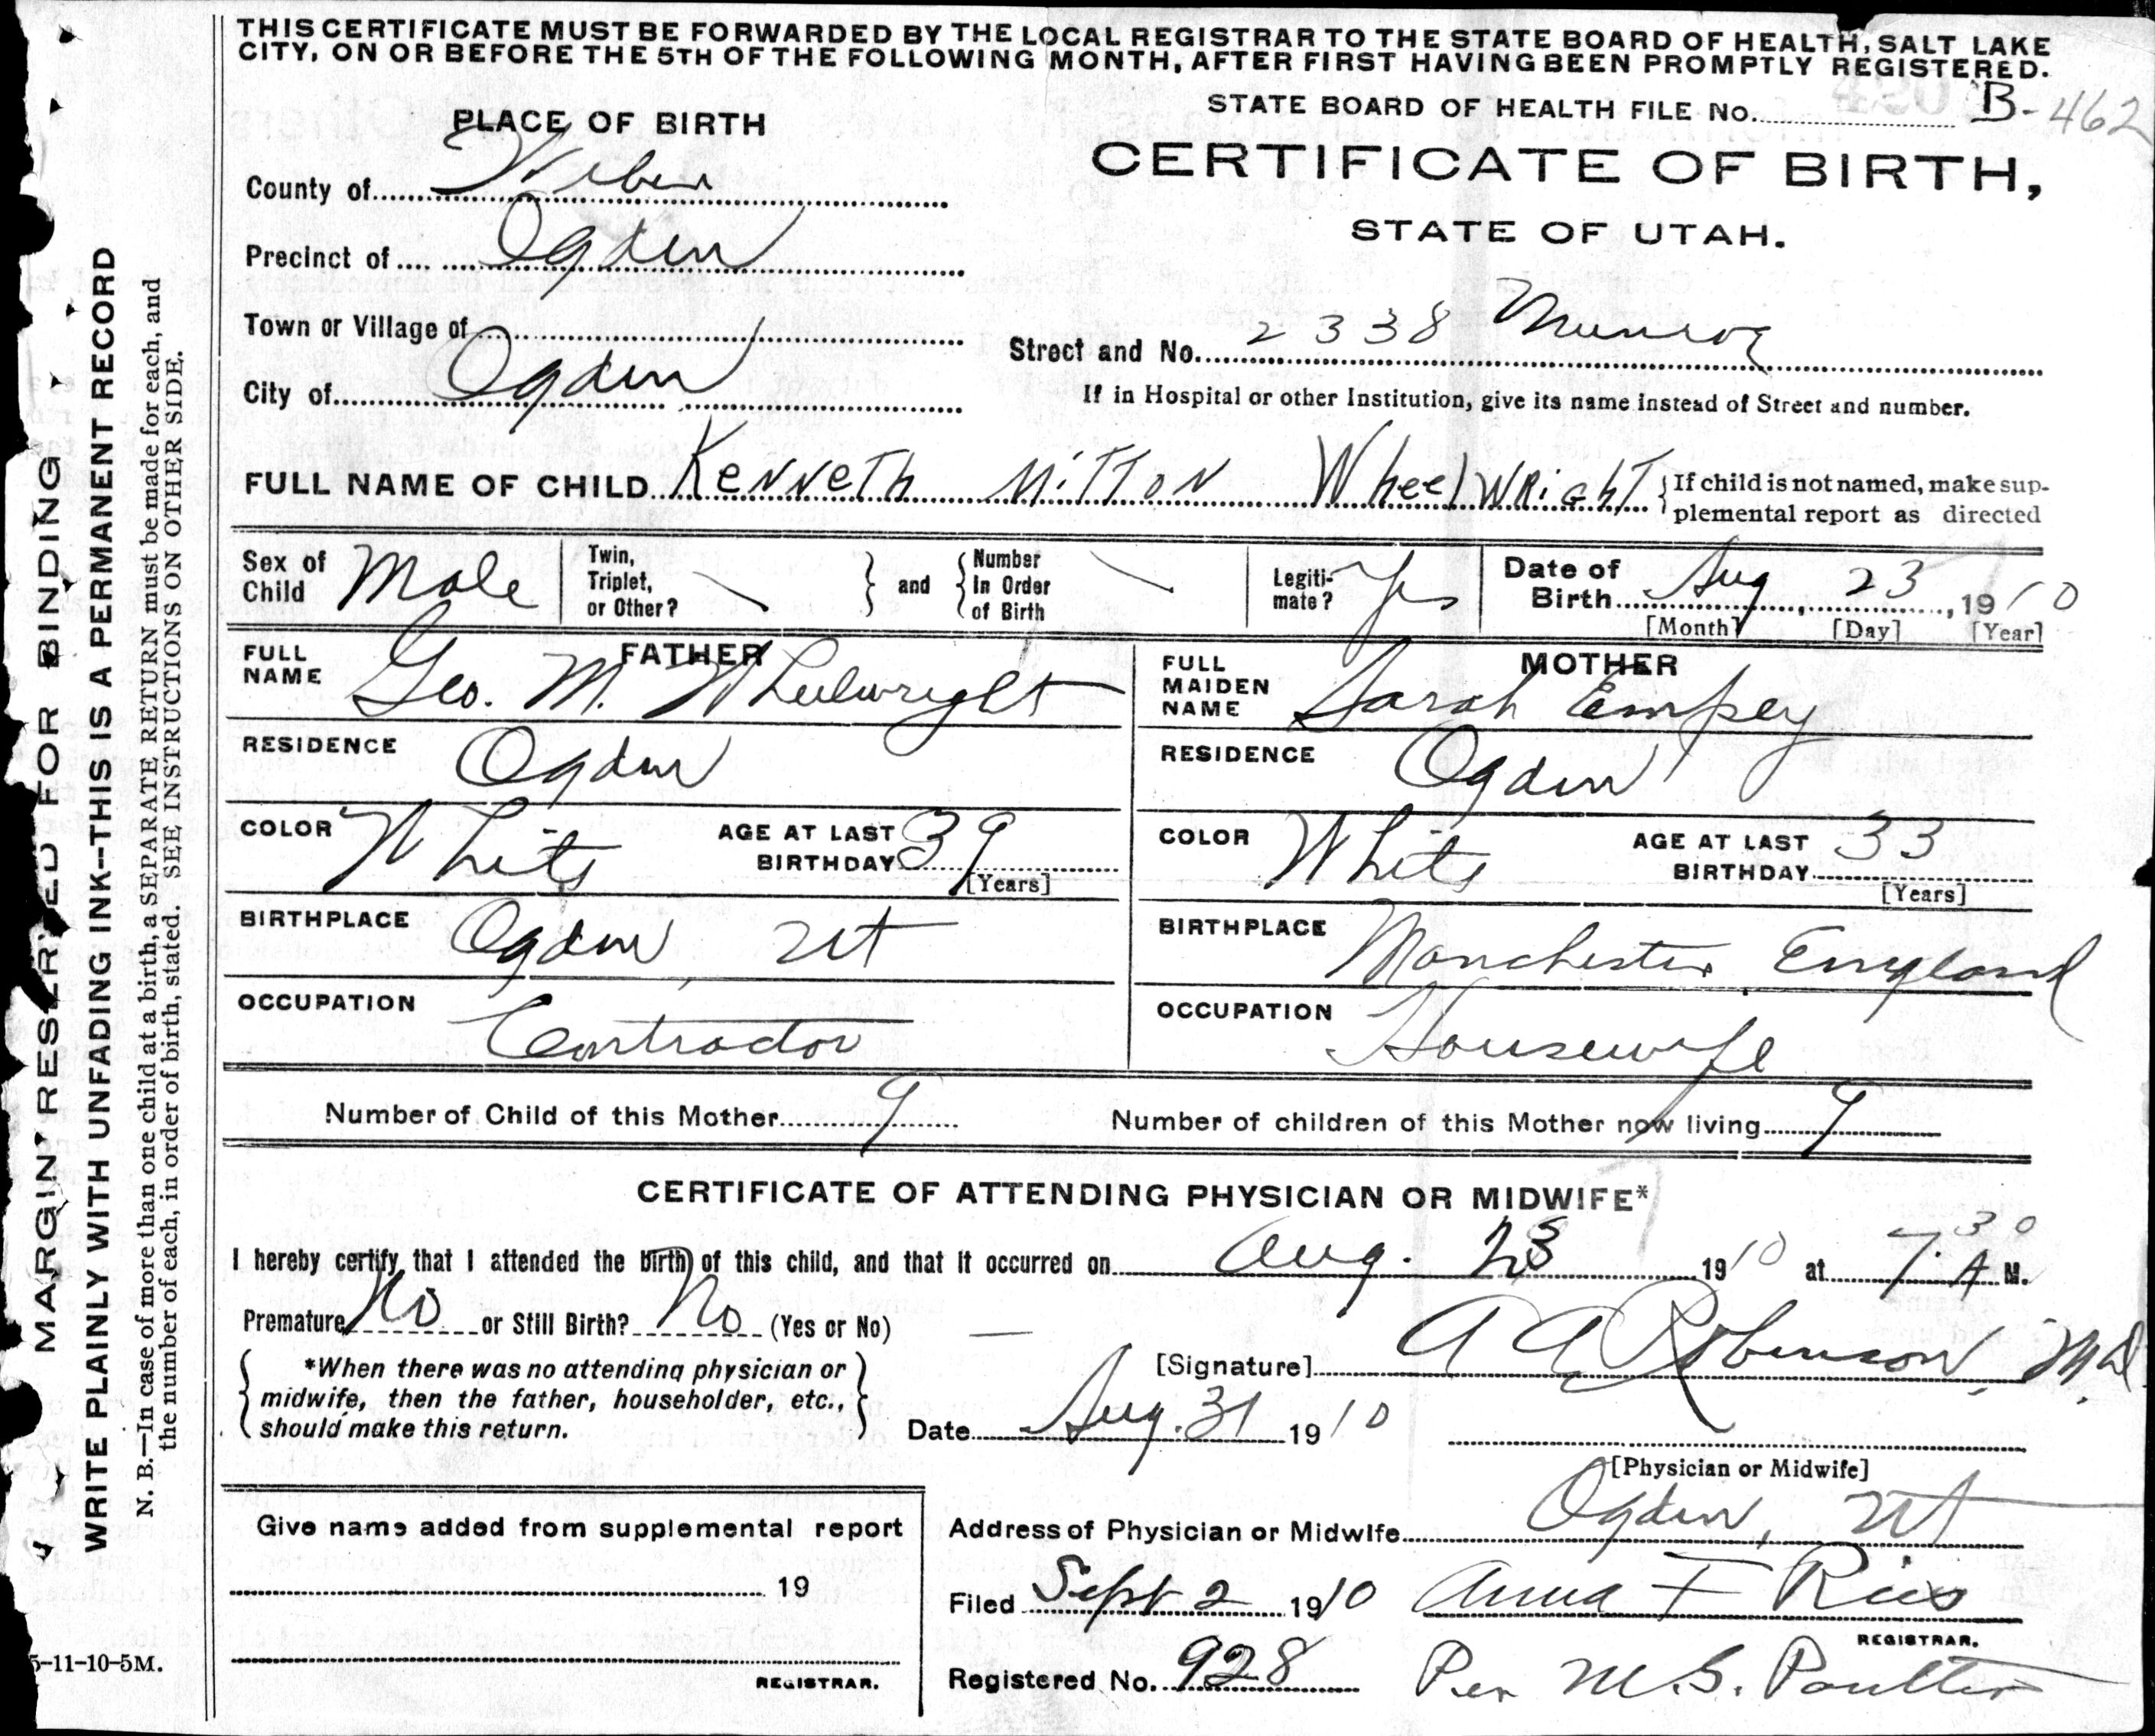 THIS CERTIFICATE MUST BE FORWARDED BY THE LOCAL REGISTRAR TO THE STATE BOARD OF HEALTH, SALT LAKE
CITY, ON OR BEFORE THE 5TH OF THE FOLLOWING MONTH, AFTER FIRST HAVING BEEN PROMPTLY REGISTERED.
STATE BOARD OF HEALTH FILE No. B-462
PLACE OF BIRTH
CERTIFICATE OF BIRTH,
STATE OF UTAH.
County of Weber
Precinct of Ogden
Town or Village of
Street and No. 2338 Munroe
City of Ogden
If in Hospital or other Institution, give its name instead of Street and number.
FULL NAME OF CHILD Kenneth Mitton Wheelwright
If child is not named, make sup-
plemental report as directed
Sex of Child Male
Twin, Triplet, or Other?
and
Number In Order of Birth
Legiti-mate? Yes
Date of Birth Aug 23, 1910
[Month] [Day] [Year]
FATHER
FULL NAME Geo. M. Wheelwright
RESIDENCE Ogden
COLOR White AGE AT LAST BIRTHDAY 39
[Years]
BIRTHPLACE Ogden, Ut
OCCUPATION Contractor
MOTHER
FULL MAIDEN NAME Sarah Empey
RESIDENCE Ogden
COLOR White AGE AT LAST BIRTHDAY 33
[Years]
BIRTHPLACE Manchester, England
OCCUPATION Housewife
Number of Child of this Mother 9 Number of children of this Mother now living 9
CERTIFICATE OF ATTENDING PHYSICIAN OR MIDWIFE*
I hereby certify that I attended the birth of this child, and that it occurred on Aug. 23 1910 at 7.30 A M.
Premature No or Still Birth? No (Yes or No)
*When there was no attending physician or
midwife, then the father, householder, etc.,
should make this return.
[Signature] A A Robinson, M.D.
Date Aug. 31 1910
[Physician or Midwife]
Address of Physician or Midwife Ogden, Ut
Give name added from supplemental report
19
REGISTRAR.
Filed Sept 2 1910 Anna F Ries
REGISTRAR.
Registered No. 928 Per M.S. Poulter
5-11-10-5M.
MARGIN RESERVED FOR BINDING
WRITE PLAINLY WITH UNFADING INK--THIS IS A PERMANENT RECORD
N. B.—In case of more than one child at a birth, a SEPARATE RETURN must be made for each, and
the number of each, in order of birth, stated. SEE INSTRUCTIONS ON OTHER SIDE.